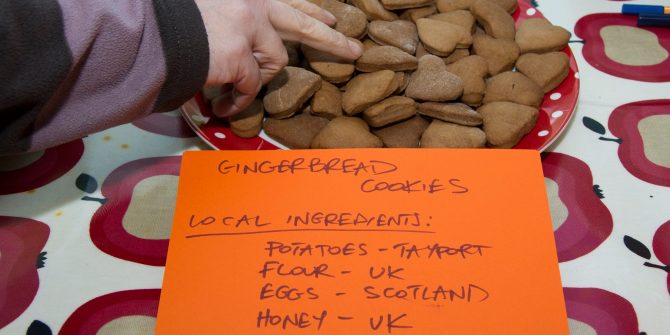 GINGERBREAD
COOKIES
LOCAL INGREDIENTS:
POTATOES - TAYPORT
FLOUR - UK
EGGS - SCOTLAND
HONEY - UK